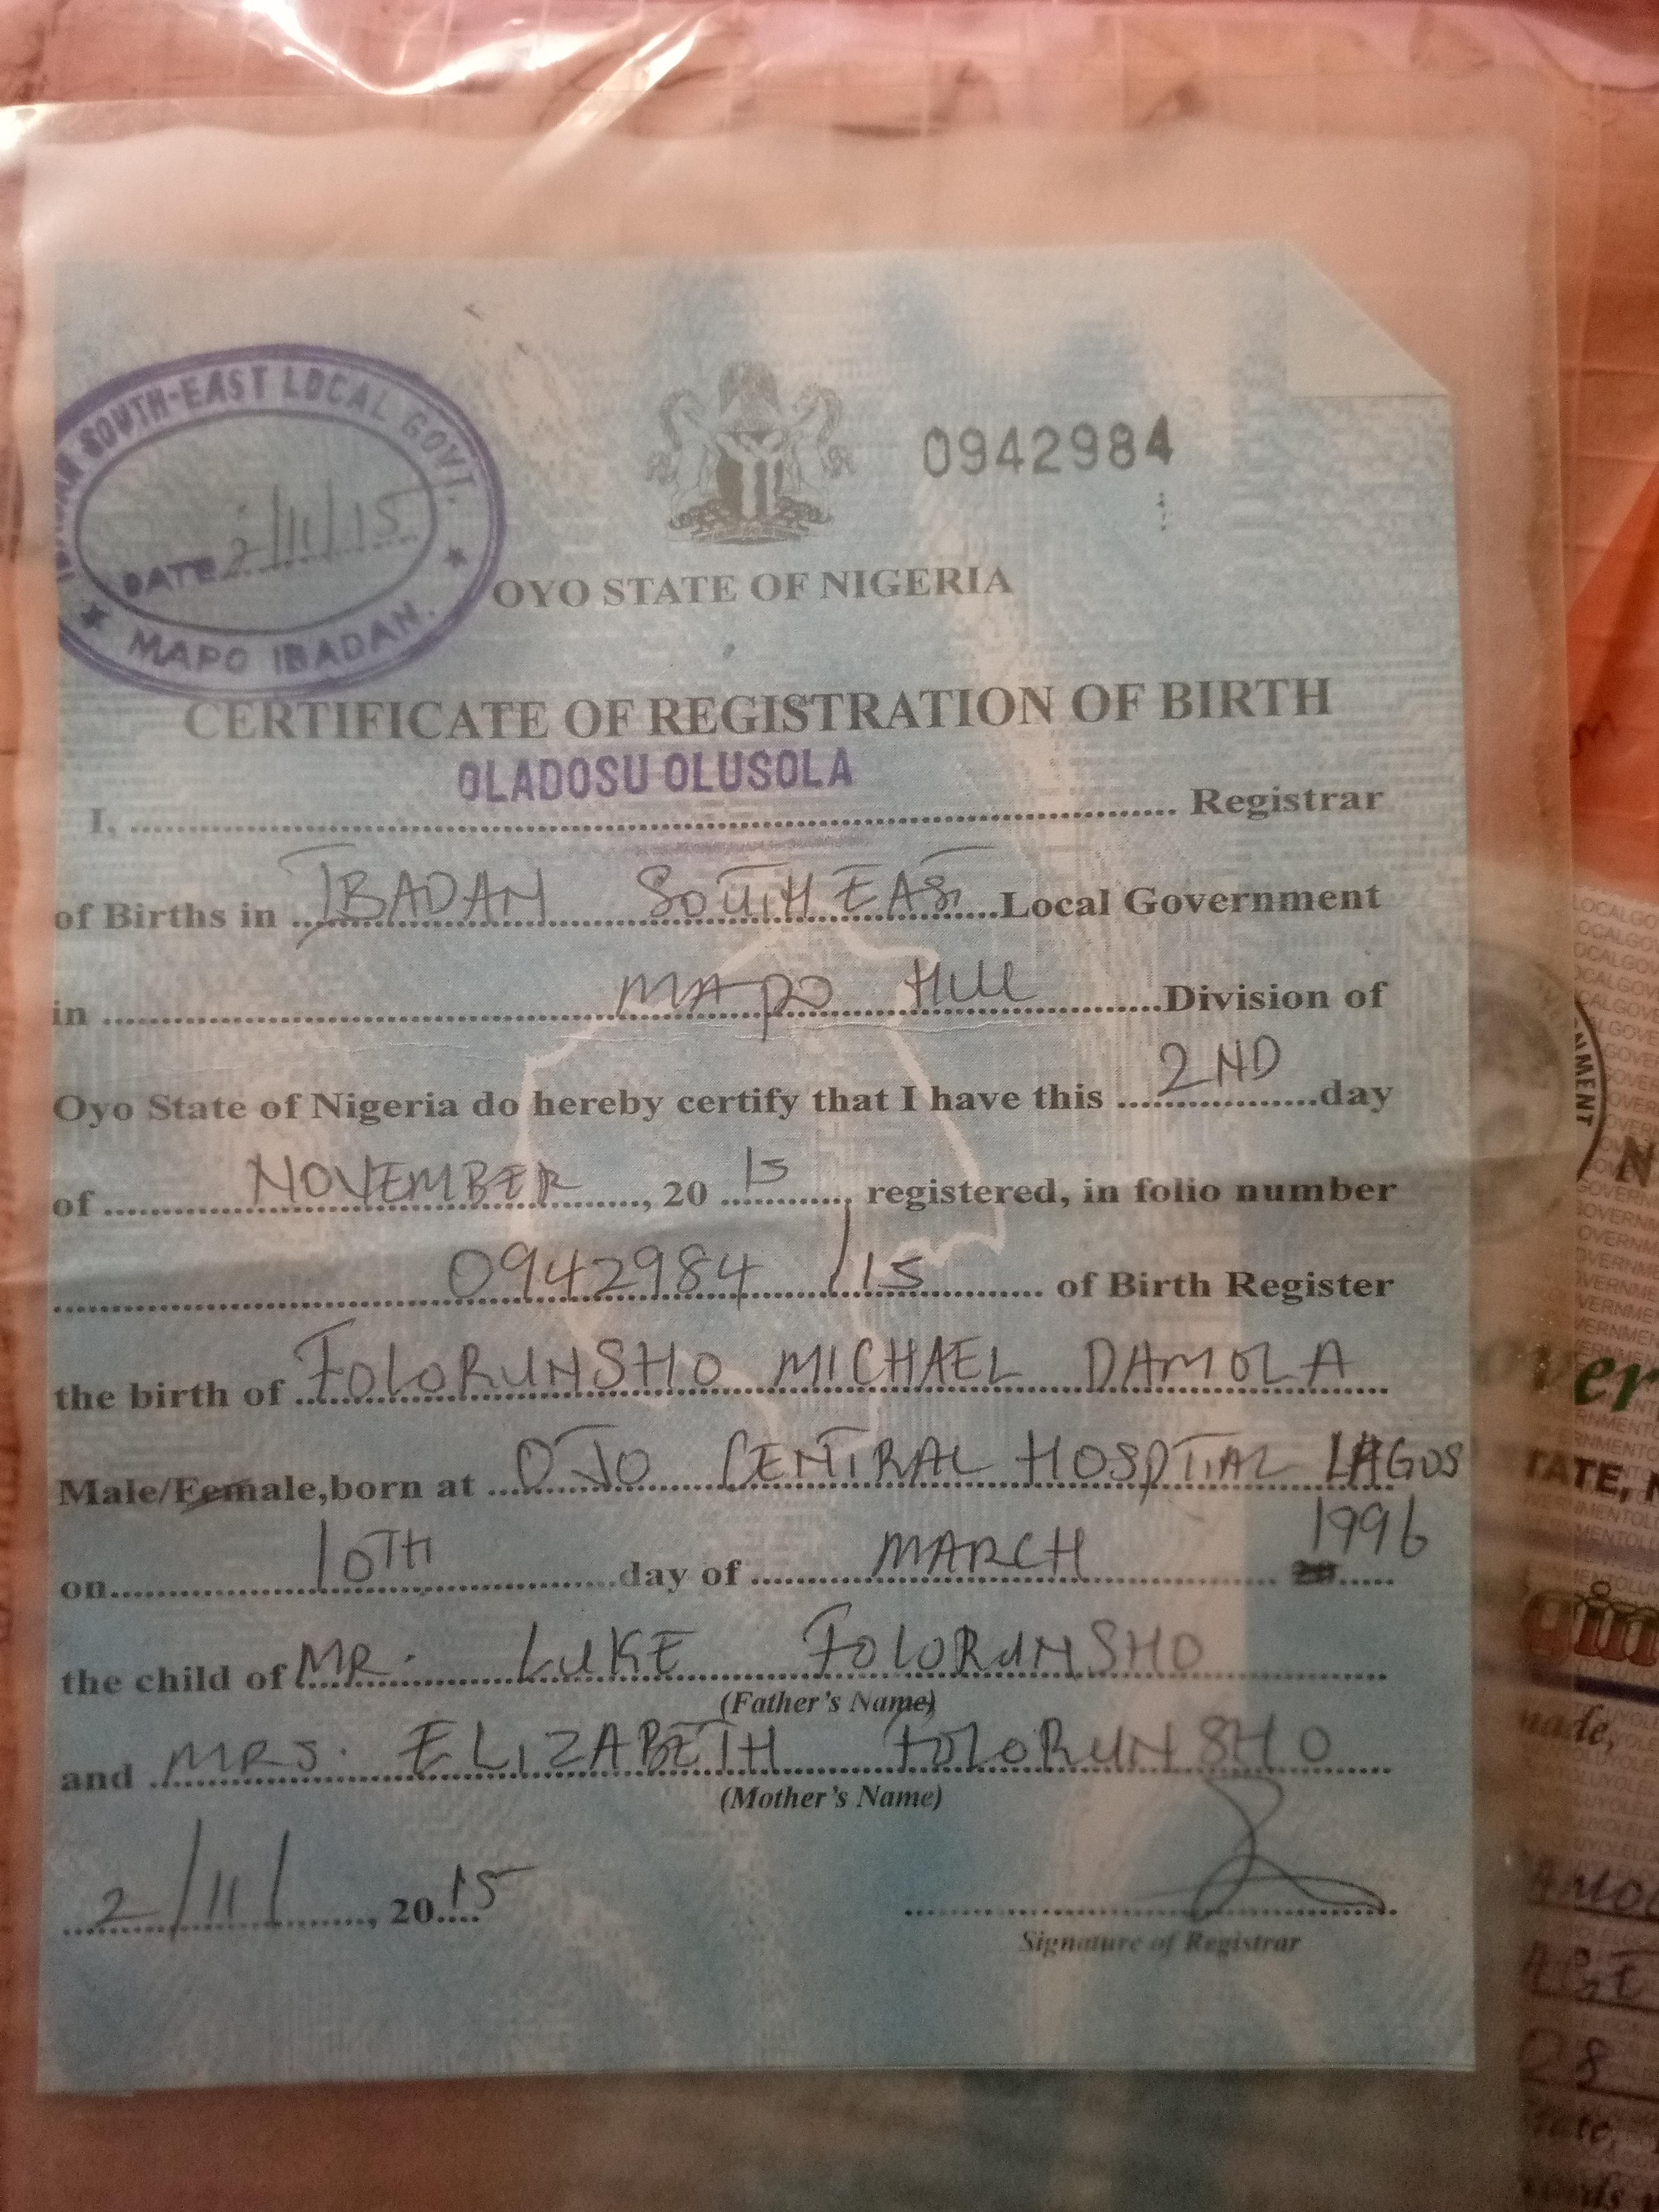 SOUTH-EAST LOCAL GOVT.
DATE 2/11/15
MAPO IBADAN.
0942984
OYO STATE OF NIGERIA
CERTIFICATE OF REGISTRATION OF BIRTH
OLADOSU OLUSOLA
I, .......... Registrar
of Births in IBADAN SOUTH EAST Local Government
in MAPO HILL Division of
Oyo State of Nigeria do hereby certify that I have this 2ND day
of NOVEMBER, 20 15 registered, in folio number
0942984/15 of Birth Register
the birth of FOLORUNSHO MICHAEL DAMOLA
Male/Female,born at OJO CENTRAL HOSPITAL LAGOS
on 10TH day of MARCH 1996
the child of MR. LUKE FOLORUNSHO
(Father's Name)
and MRS. ELIZABETH FOLORUNSHO
(Mother's Name)
2/11/, 20 15
Signature of Registrar
NMENT
N
ver
TATE, N
gin
made,